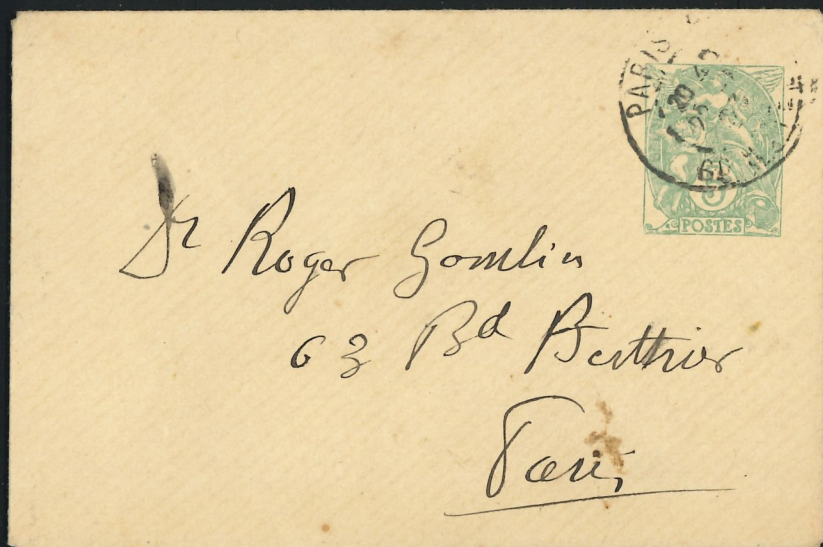 PARIS
5
POSTES
Dr Roger Gomlin
63 Bd Berthier
Paris